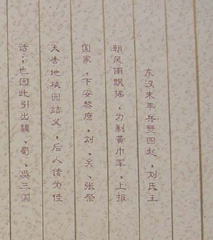 东汉末年兵燹四起，刘氏王
朝风雨飘摇，为制黄巾军，上报
国家，下安黎庶，刘、关、张祭
天告地桃园结义，后人借为佳
话；也因此引出魏、蜀、吴三国